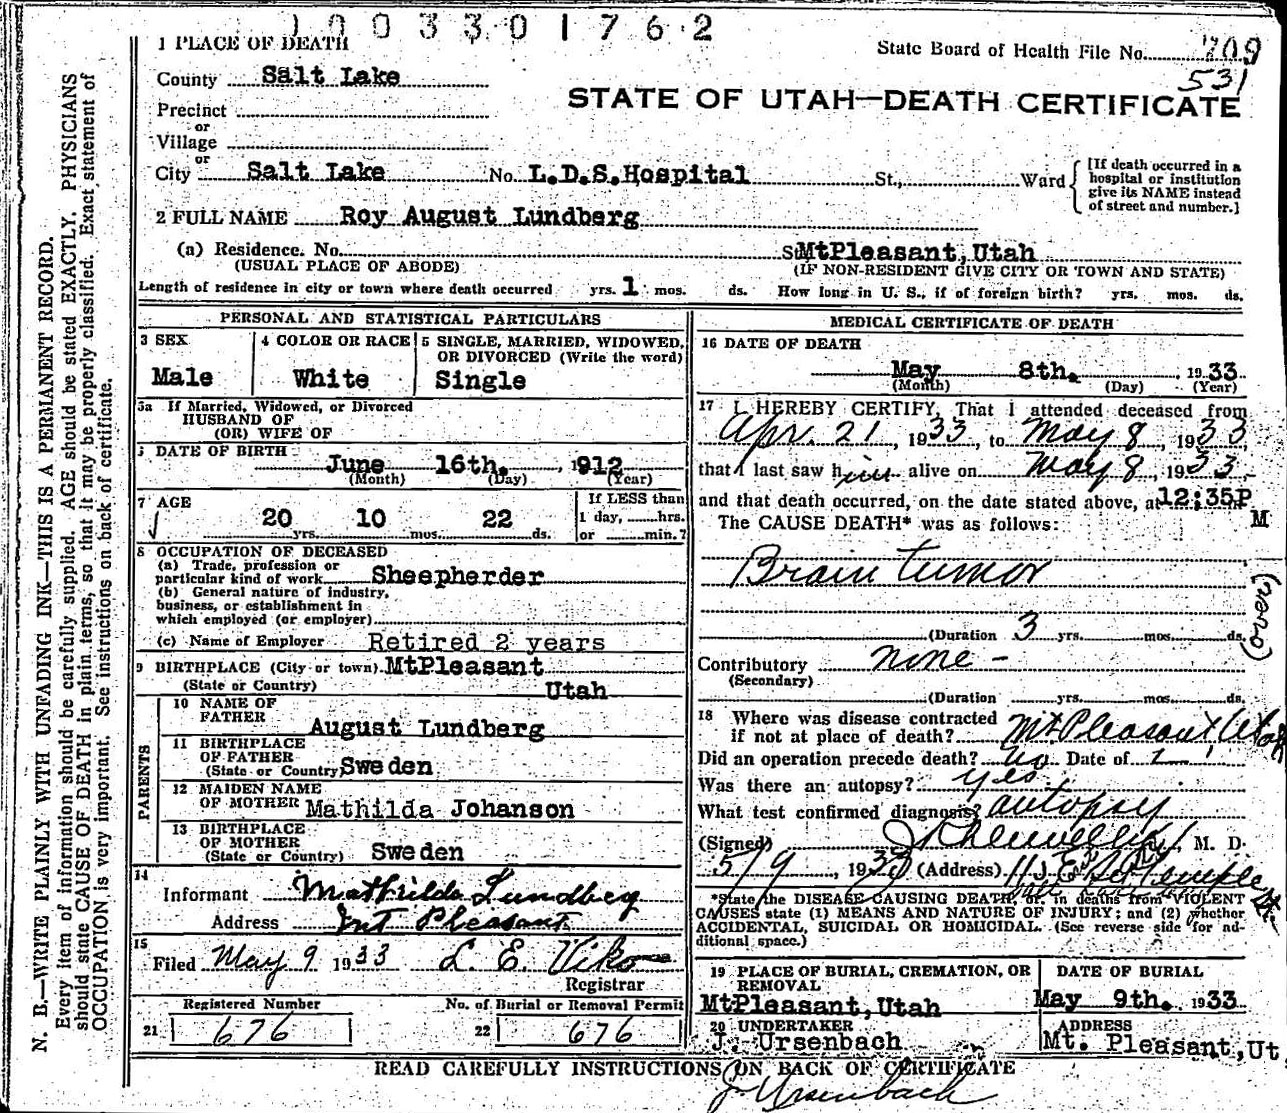 1003301762
1 PLACE OF DEATH
State Board of Health File No. 709
531
County Salt Lake
STATE OF UTAH—DEATH CERTIFICATE
Precinct
or
Village
or
City Salt Lake No. L.D.S.Hospital St., Ward
[If death occurred in a
hospital or institution
give its NAME instead
of street and number.]
2 FULL NAME Roy August Lundberg
(a) Residence. No. St. MtPleasant, Utah
(USUAL PLACE OF ABODE) (IF NON-RESIDENT GIVE CITY OR TOWN AND STATE)
Length of residence in city or town where death occurred yrs. 1 mos. ds. How long in U. S., if of foreign birth? yrs. mos. ds.
PERSONAL AND STATISTICAL PARTICULARS
3 SEX
Male
4 COLOR OR RACE
White
5 SINGLE, MARRIED, WIDOWED,
OR DIVORCED (Write the word)
Single
5a If Married, Widowed, or Divorced
HUSBAND OF
(OR) WIFE OF
6 DATE OF BIRTH
June 16th. , 1912
(Month) (Day) (Year)
7 AGE
20 yrs. 10 mos. 22 ds.
If LESS than
1 day, hrs.
or min.?
8 OCCUPATION OF DECEASED
(a) Trade, profession or
particular kind of work Sheepherder
(b) General nature of industry,
business, or establishment in
which employed (or employer)
(c) Name of Employer Retired 2 years
9 BIRTHPLACE (City or town) MtPleasant
(State or Country) Utah
PARENTS
10 NAME OF
FATHER
August Lundberg
11 BIRTHPLACE
OF FATHER
(State or Country) Sweden
12 MAIDEN NAME
OF MOTHER Mathilda Johanson
13 BIRTHPLACE
OF MOTHER
(State or Country) Sweden
14
Informant Mathilda Lundberg
Address Mt Pleasant
15
Filed May 9 1933 L. E. Viko
Registrar
Registered Number No. of Burial or Removal Permit
21 676 22 676
MEDICAL CERTIFICATE OF DEATH
16 DATE OF DEATH
May 8th. , 1933
(Month) (Day) (Year)
17 I HEREBY CERTIFY, That I attended deceased from
Apr. 21, 1933, to May 8, 1933
that I last saw him alive on May 8, 1933
and that death occurred, on the date stated above, at 12:35P
M
The CAUSE DEATH* was as follows:
Brain tumor
(over)
(Duration 3 yrs. mos. ds.
Contributory none -
(Secondary)
(Duration yrs. mos. ds.
18 Where was disease contracted
if not at place of death? Mt Pleasant, Utah
Did an operation precede death? no Date of
Was there an autopsy? yes
What test confirmed diagnosis? autopsy
(Signed) , M. D.
5/9, 1933 (Address)
*State the DISEASE CAUSING DEATH, or, in deaths from VIOLENT
CAUSES state (1) MEANS AND NATURE OF INJURY; and (2) whether
ACCIDENTAL, SUICIDAL OR HOMICIDAL. (See reverse side for ad-
ditional space.)
19 PLACE OF BURIAL, CREMATION, OR
REMOVAL
MtPleasant, Utah
DATE OF BURIAL
May 9th. 1933
20 UNDERTAKER
J. Ursenbach
ADDRESS
Mt. Pleasant, Ut
READ CAREFULLY INSTRUCTIONS ON BACK OF CERTIFICATE
J Ursenbach
N. B.—WRITE PLAINLY WITH UNFADING INK—THIS IS A PERMANENT RECORD.
Every item of information should be carefully supplied. AGE should be stated EXACTLY. PHYSICIANS
should state CAUSE OF DEATH in plain terms, so that it may be properly classified. Exact statement of
OCCUPATION is very important. See instructions on back of certificate.